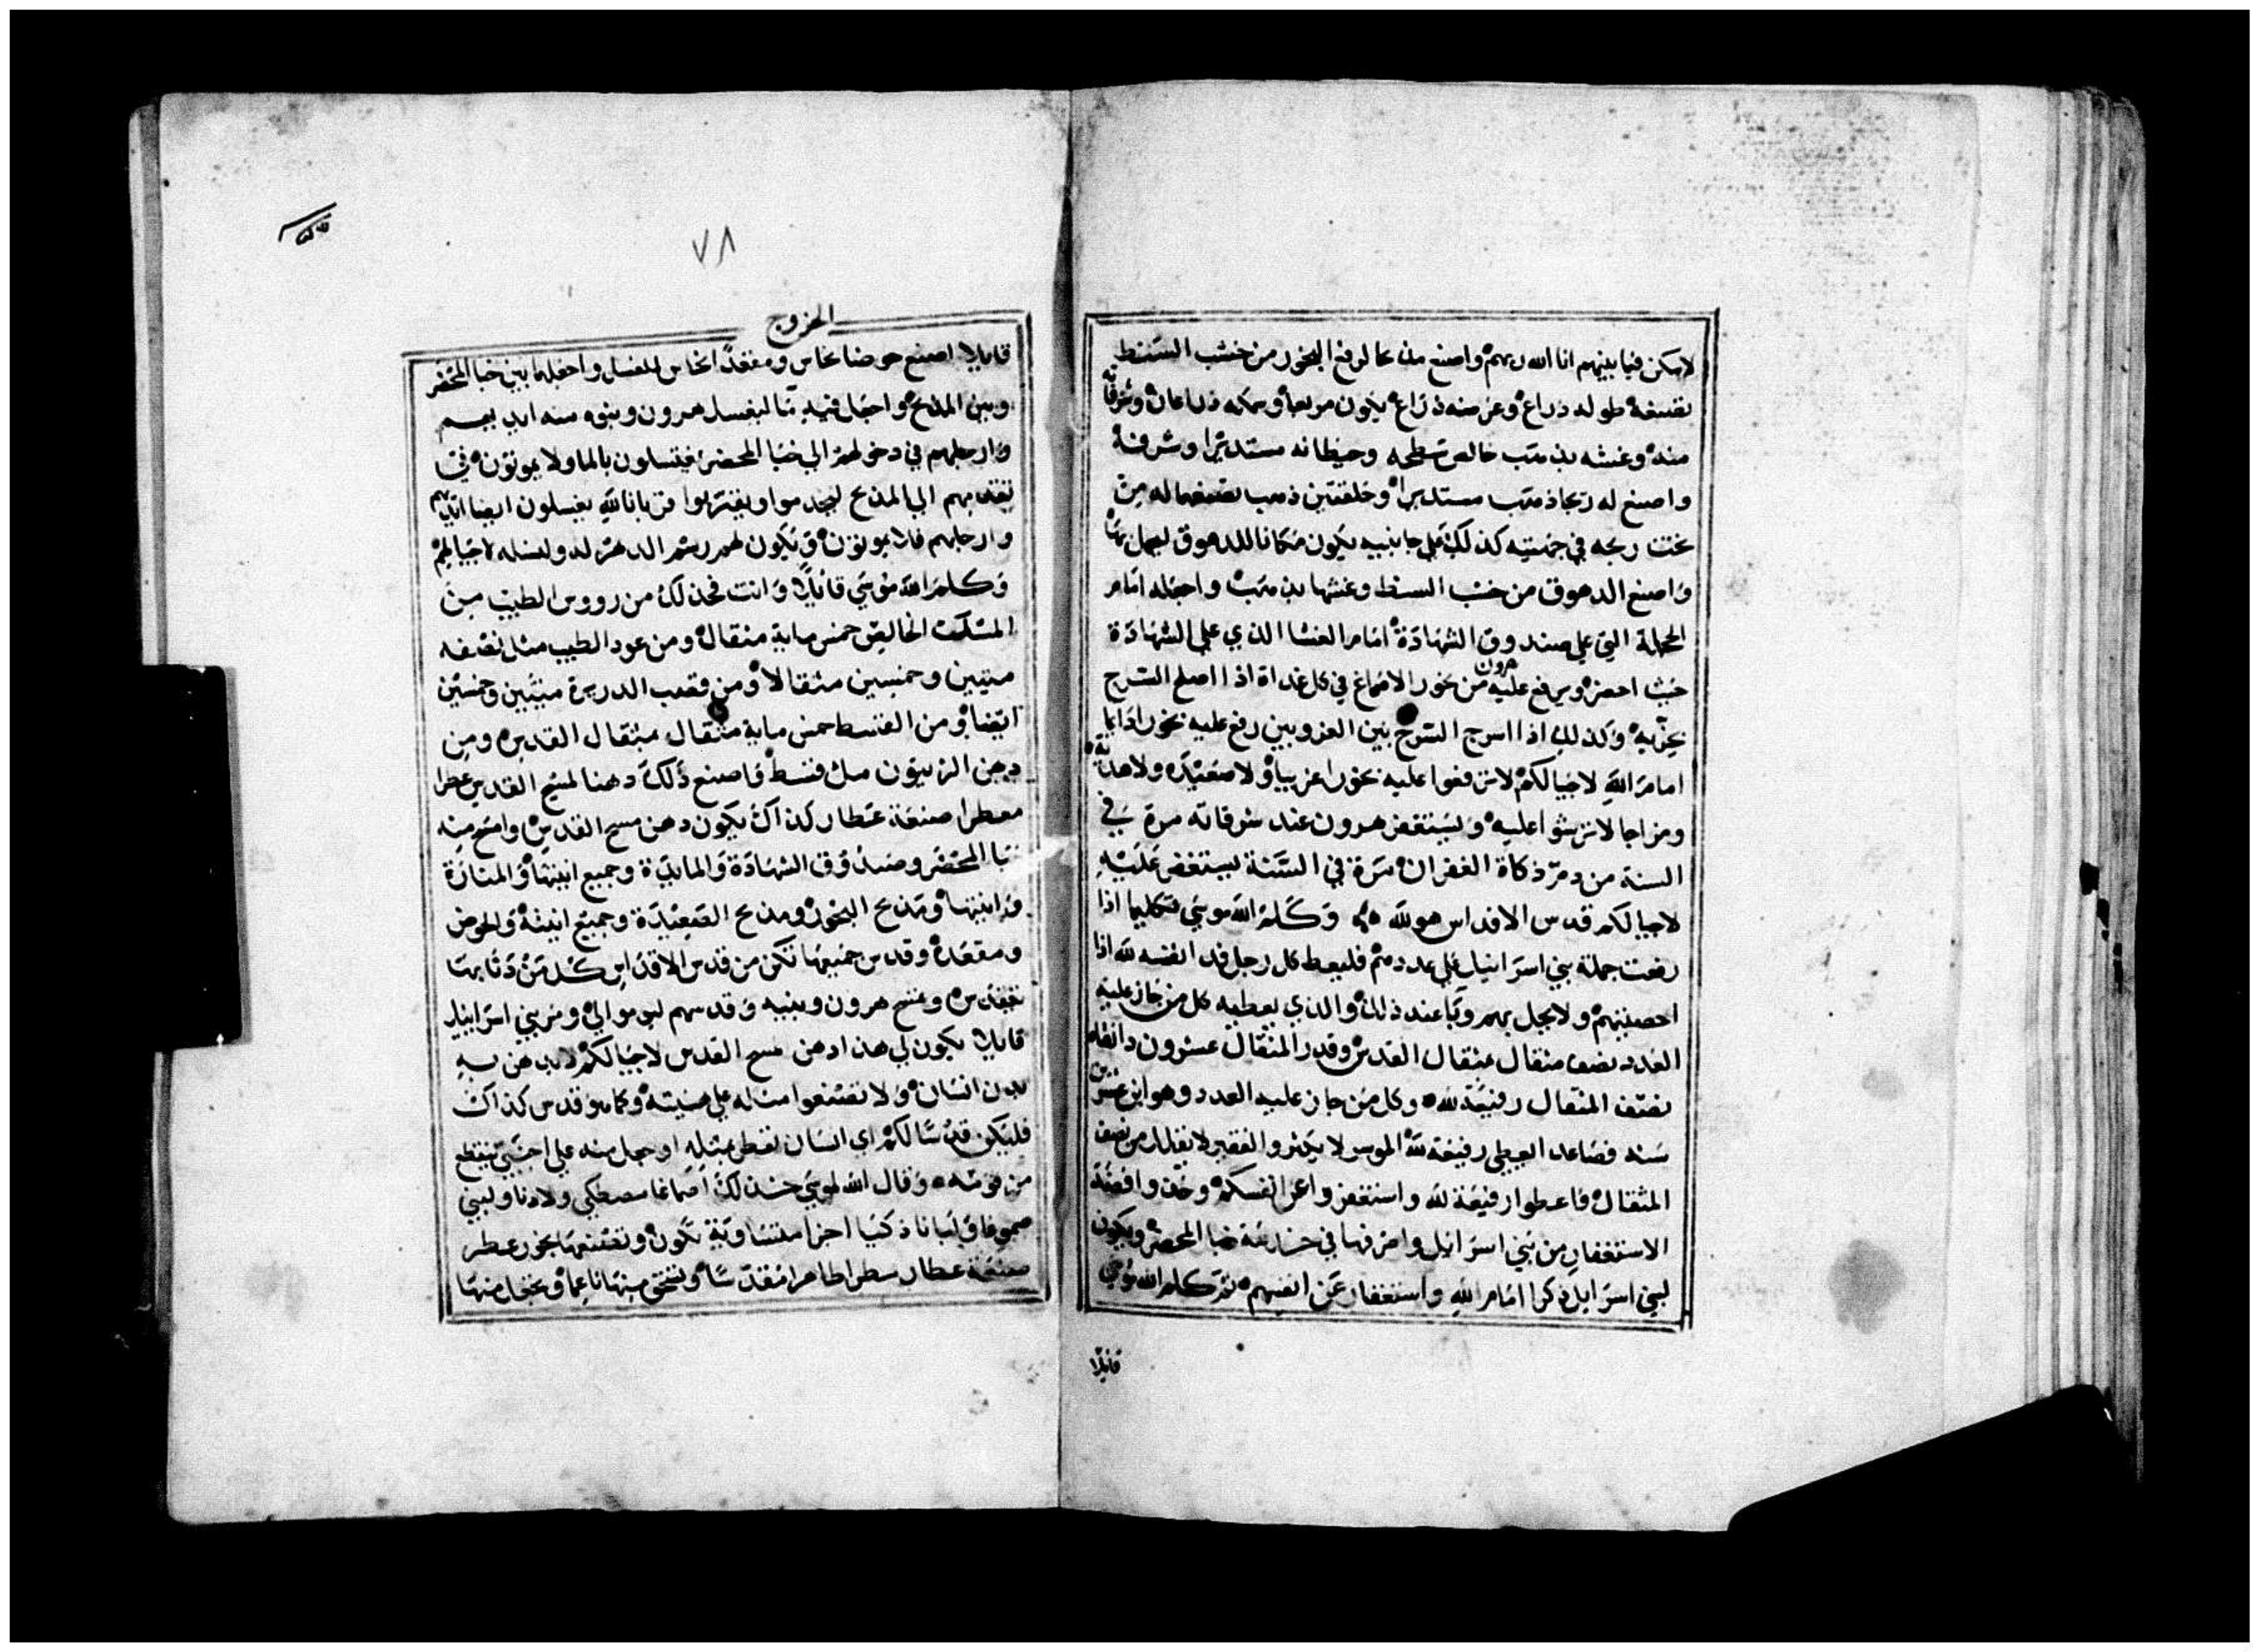 لاسكن فيما بينهم انا الله ربهم واصنع مذبحا لرفع البخور من خشب السنط
تصنعه طوله ذراع وعرضه ذراع يكون مربعا وسمكه ذراعان وشرفاته
منه وغشه بذهب خالص سطحه وحيطانه مستديرا وشرفه
واصنع له زيجا ذهب مستديرا وحلقتين ذهب تصنعهما له من
تحت زيجه في جهتيه كذلك على جانبيه يكون مكانا للدهوق ليحمل بها
واصنع الدهوق من خشب السنط وغشها بذهب واجعله امام
الحجلة التي على صندوق الشهادة امام الغشا الذي على الشهادة
حيث احضر ويرفع عليه هرون من بخور الاصماغ في كل غداة اذا اصلح السرج
يبخر به وكذلك اذا اسرج السرج بين الغروبين رفع عليه بخورا دايما
امام الله لاجيالكم لا ترفعوا عليه بخورا غريبا ولا صعيدة ولا هدية
ومزاجا لا ترشوا عليه ويستغفر هرون عند شرفاته مرة في
السنة من دم ذكاة الغفران مرة في السنة يستغفر عليه
لاجيالكم قدس الاقداس هو لله وكلم الله موسى تكليما اذا
رفعت جملة بني اسرائيل على عددهم فليعط كل رجل فدا نفسه لله اذا
احصيتهم ولا يحل بهم وبا عند ذلك والذي يعطيه كل من جاز عليه
العدد نصف مثقال بمثقال القدس وقدر المثقال عشرون دانقا
نصف المثقال رفيعة لله وكل من جاز عليه العدد وهو ابن عشرين
سنه فصاعدا ليعطي رفيعة لله الموسر لا يكثر والفقير لا يقلل من نصف
المثقال فاعطوا رفيعة لله واستغفروا عن انفسكم وخذ وافضة
الاستغفار من بني اسرائيل واصرفها في خدمة خبا المحضر ويكون
لبني اسرايل ذكرا امام الله واستغفار عن انفسهم ثم كلم الله موسى
قائلا
٧٨
الخروج
قايلا اصنع حوضا نحاس ومقعدا نحاس للغسل واجعلها بين خبا المحضر
وبين المذبح واجعل فيه ما ليغسل هرون وبنوه منه ايديهم
وارجلهم في دخولهم الى خبا المحضر يغتسلون بالما ولا يموتون في
تقدمهم الى المذبح ليخدموا ويقربوا قربانا لله يغسلون ايضا ايديهم
وارجلهم فلا يموتون ويكون لهم رسم الدهر له ولنسله لاجيالهم
وكلم الله موسى قائلا وانت فخذ لك من رووس الطيب من
المسك الخالص خمس ماية مثقال ومن عود الطيب مثل نصفه
ميتين وخمسين مثقالا ومن قصب الدريرة ميتين وخمسين
ايضا ومن القسط خمس ماية مثقال بمثقال القدس ومن
دهن الزيتون مل قسط فاصنع ذلك دهنا لمسح القدس عطرا
معطرا صنعة عطار كذاك يكون دهن مسح القدس وامسح منه
خبا المحضر وصندوق الشهادة والمايدة وجميع انيتها والمنارة
وانيتها ومذبح البخور ومذبح الصعيدة وجميع انيته والحوض
ومقعده وقدس جميعها تكن من قدس الاقداس كل من دنا بها
تقدس وامسح هرون وبنيه وقدسهم ليوموا لي ومر بني اسرايل
قايلا يكون لي هذا دهن مسح القدس لاجيالكم لا يدهن به
بدن انسان ولا تصنعوا مثله على هيئته وكما هو قدس كذاك
فليكن قدسا لكم اي انسان تعطر بمثله او جعل منه على اجنبي ينقطع
من قومه وقال الله لموسى خذ لك اصماغا مصطكي ولادنا ولبني
صموغا ولبانا ذكيا اجزا متساوية تكون وتصنعها بخور عطر
صنعة عطار سطرا طاهرا مقدسا وتسحق منها ناعما وتجعل منها